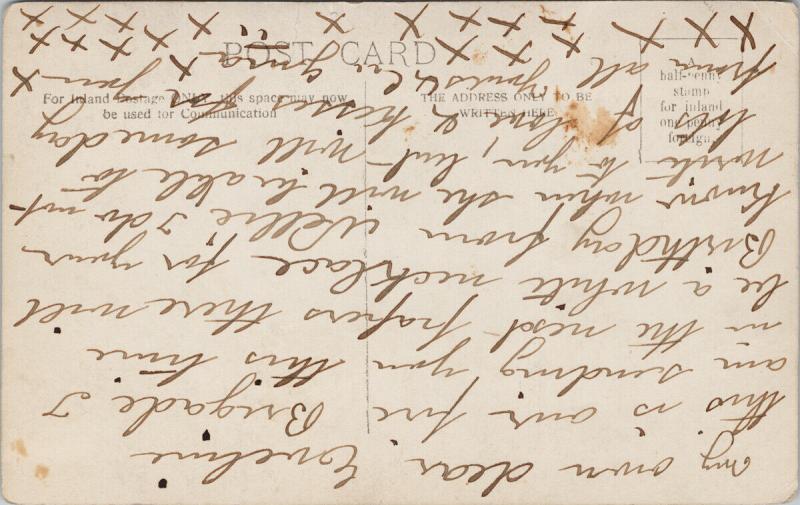 POST CARD
For Inland Postage ONLY, this space may now
be used for Communication
THE ADDRESS ONLY TO BE
WRITTEN HERE
A
half-penny
stamp
for inland
one penny
foreign.
My own dear Eveline
this is our fire Brigade I
am sending you this time
in the next papers there will
be a white necklace for your
Birthday from Nellie I do not
know when she will be able to
write to you, but will someday
lots of love & kisses for you
from all yours